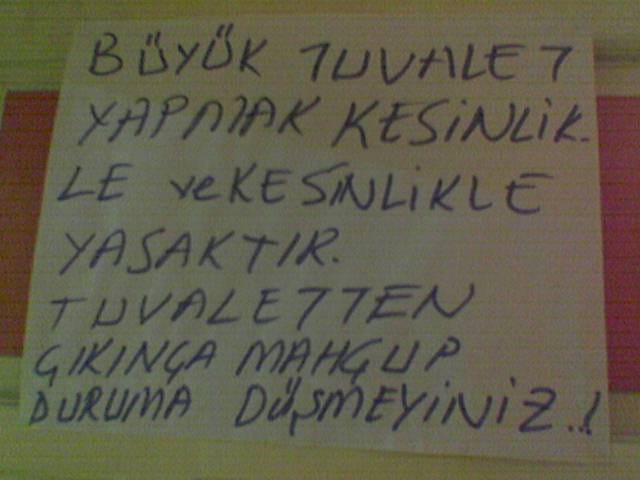 BÜYÜK TUVALET
YAPMAK KESİNLİK-
LE ve KESİNLİKLE
YASAKTIR.
TUVALETTEN
ÇIKINÇA MAHÇUP
DURUMA DÜŞMEYİNİZ..!